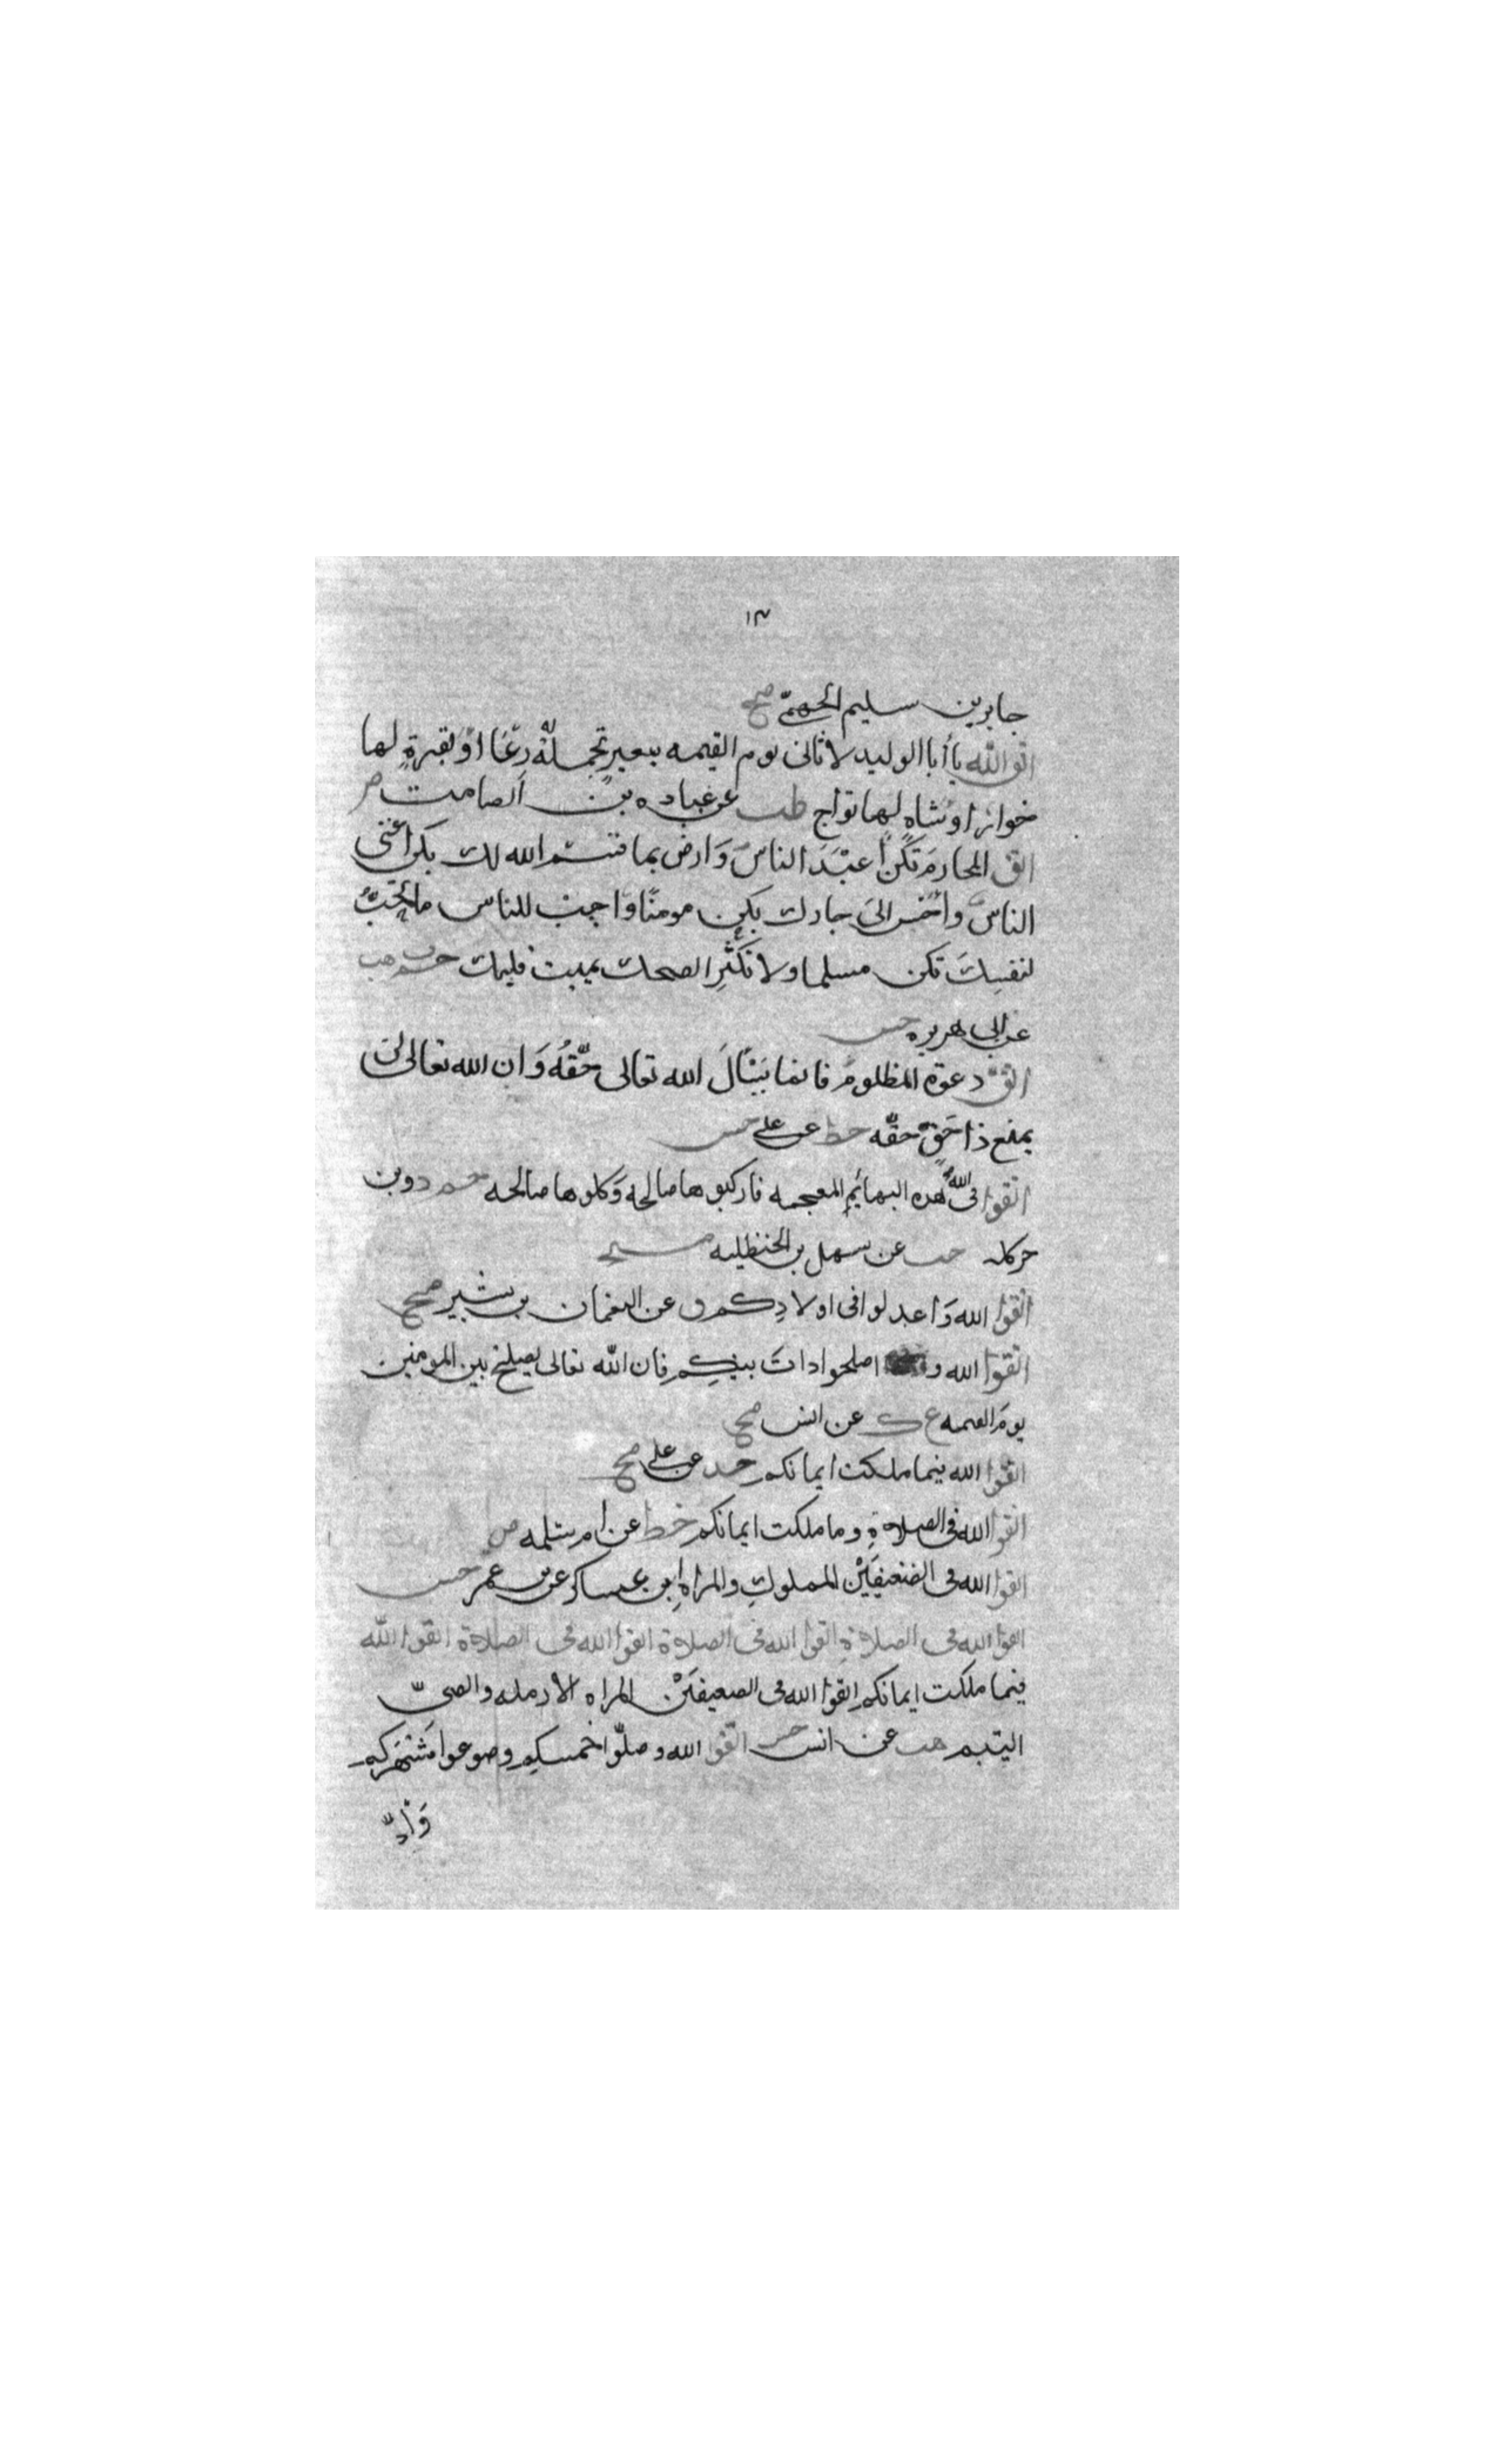 ١٣
جابر بن سليم الجهمىّ صح
اتق الله يا أبا الوليد لا تاتى يوم القيمه ببعيرٍ تحملهُ رغا اوْ بقرةٍ لها
خوار او شاهٍ لها تواج طب عن عباده بن الصامت
اتق المحارمَ تكن اعبَدَ الناسِ وَارض بما قسم الله لك تكن اغنى
الناسِ واحسن الىَ جارك تكن مومنًا وَاحب للناس ما تحبُّ
لنفسِكَ تكن مسلما ولا تكثرِ الضحك يميت فليك حم ت هب
عن ابى هريره حسن
اتق دعوة المظلومِ فانما يَسْالَ الله تعالى حقّهُ وَان الله تعالى لن
يمنع ذا حَقٍ حقّه خط عن على حسن
اتقوا اللهَ فى هذه البهائمِ المعجمه فاركبوها صالحه وَكلوها صالحه حم د وبن
حب عن سهل بن الحنظليه
اتقوا الله وَاعدلوا فى اولادِكم ق عن النعمان بن بشير صح
اتقوا الله و اصلحوا داتَ بينكِم فان الله تعالى يصلح بين المومنين
يومَ القيمه ع ك عن انس صح
اتقوا الله فيما ملكت ايمانكم خد عن على صح
اتقوا الله فى الصلاةِ وما ملكت ايمانكم خط عن ام سلمه ض
اتقوا الله فى الضعيفَيْن المملوكِ والمراه ابن عساكر عن بن عمر حسن
اتقوا الله فى الصلاةِ اتقوا الله فى الصلاة اتقوا الله فى الصلاة اتقوا الله
فيما ملكت ايمانكم اتقوا الله فى الضعيفَيْن المراه الارمله والصبىّ
اليتيم هب عن انس ح اتقوا الله وصلّوا خمسكم وصوموا شهركم
وَادّ